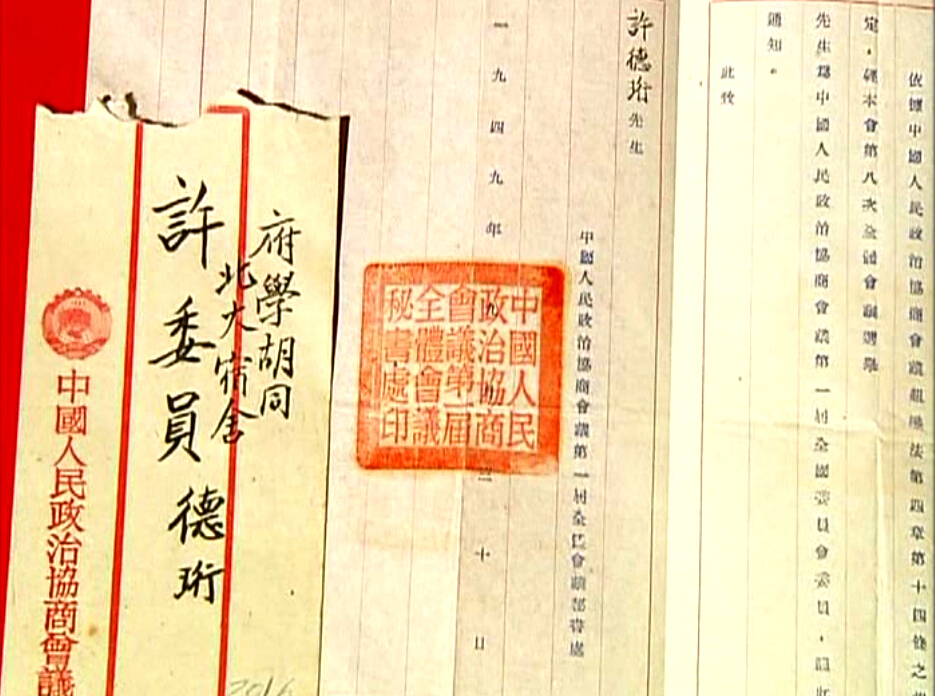 依據中國人民政治協商會議組織法第四章第十四條之規
定,經本會第八次全體會議選舉
先生為中國人民政治協商會議第一屆全國委員會委員,
通知。
此致
許德珩先生
中國人民政治協商會議第一屆全體會議秘書處
一九四九年
十日
中國人民
政治協商
會議第一屆
全體會議
秘書處印
府學胡同
北大宿舍
許委員德珩
中國人民政治協商會議